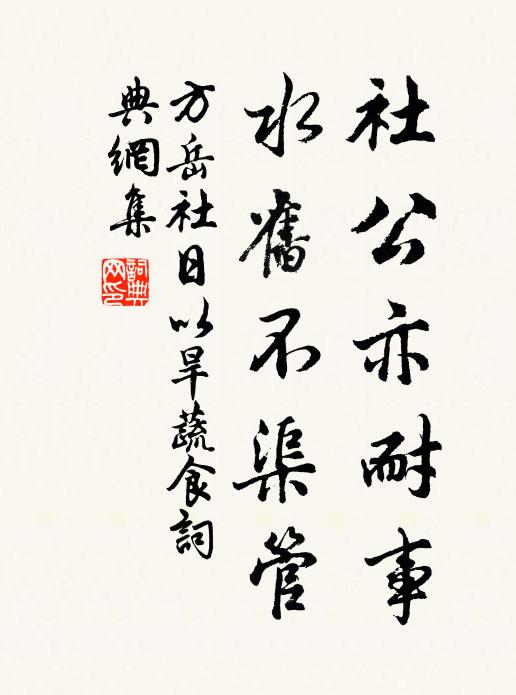 社公亦耐事
水舊不渠管
方岳社日以旱蔬食詞
典網集
詞典
网印